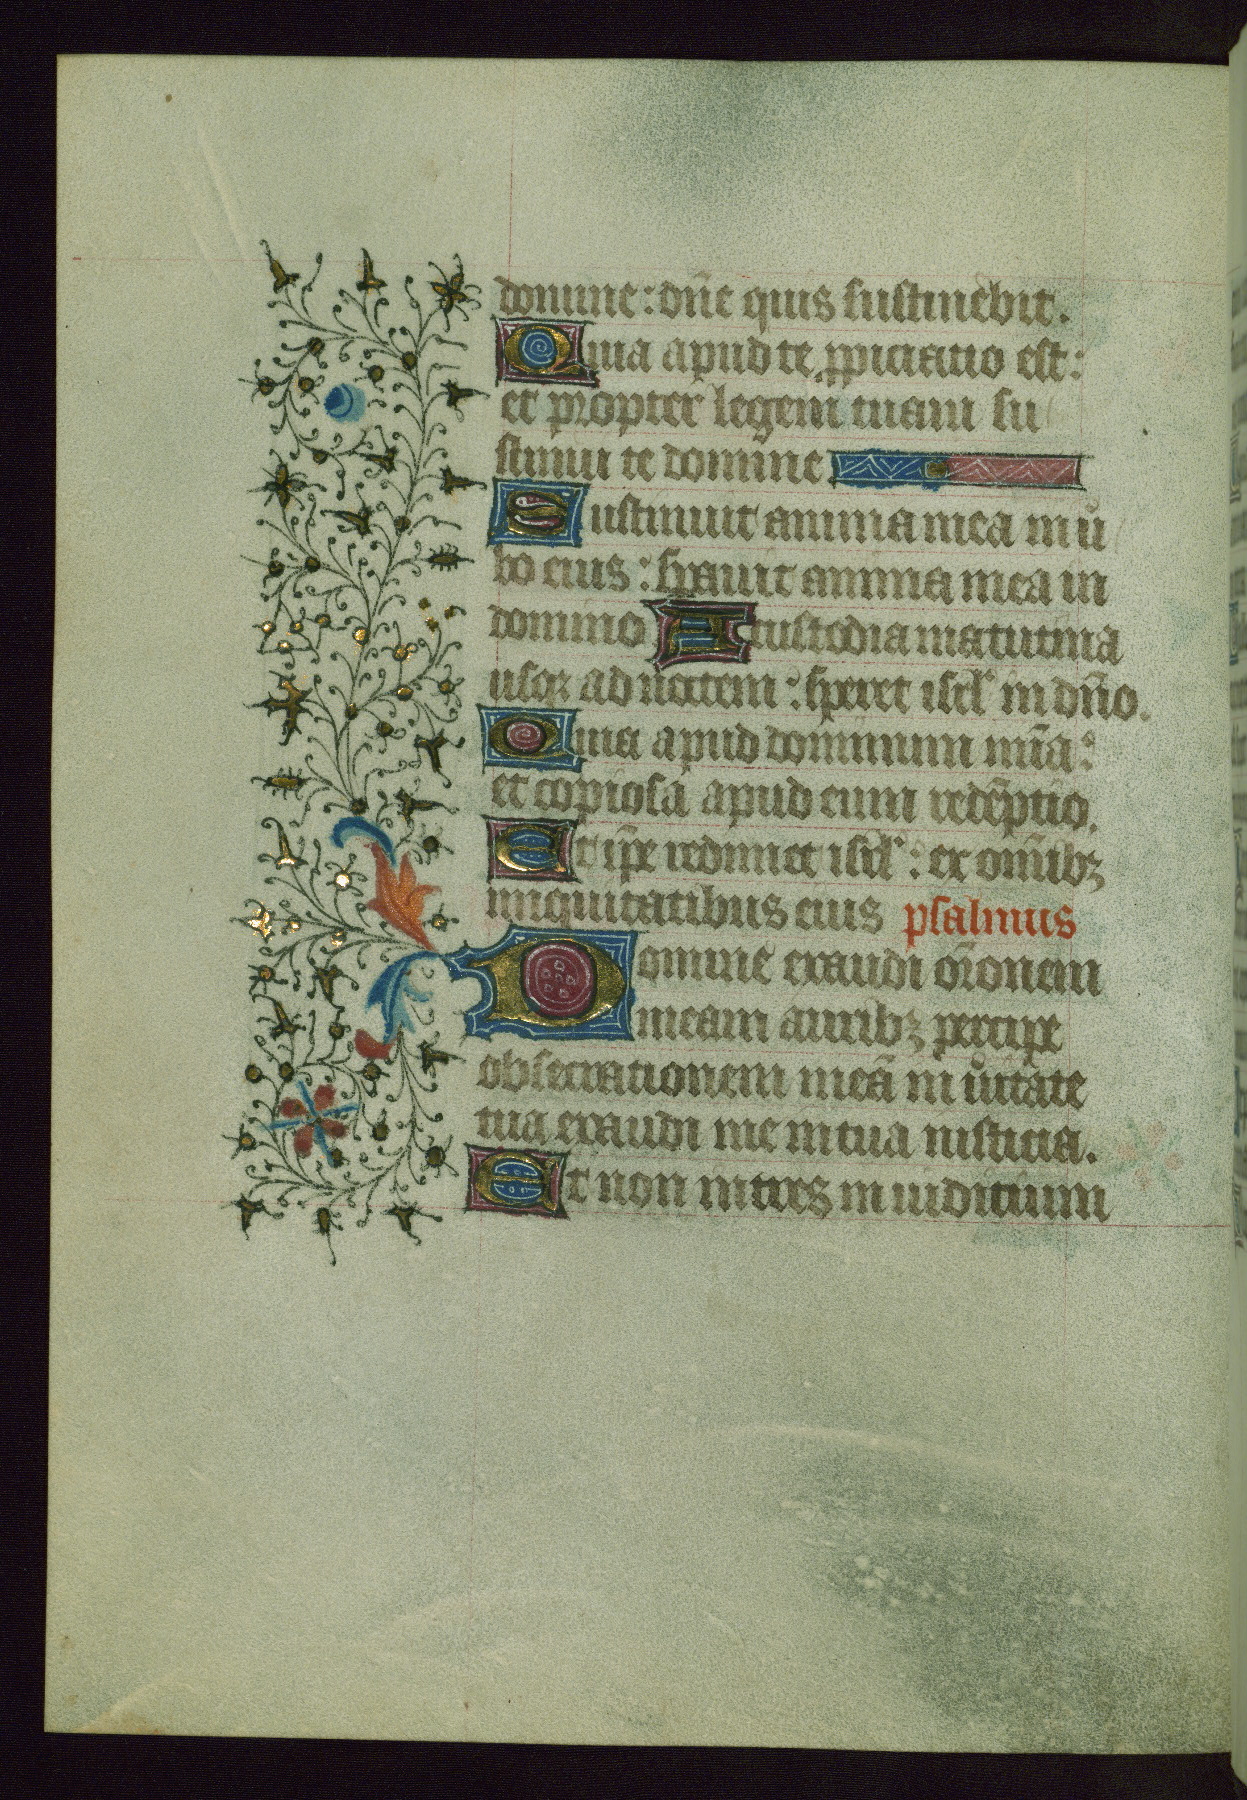 domine: dn̄e quis sustinebit.
Quia apud te ꝓpiciatio est:
et propter legem tuam su
stinui te domine
Sustinuit anima mea in ũ
bo eius: sꝑauit anima mea in
domino A custodia matutina
usqꝫ ad noctem: speret isrl' in dn̄o.
Quia apud dominum mīa:
et copiosa apud eum redēptio.
Et ip̄e redimet isrl': ex om̄ibꝫ
iniquitatibus eius psalmus
Domine exaudi or̄onem
meam auribꝫ percipe
obsecrationem meā in ũitate
tua exaudi me in tua iusticia.
Et non intres in iudicium